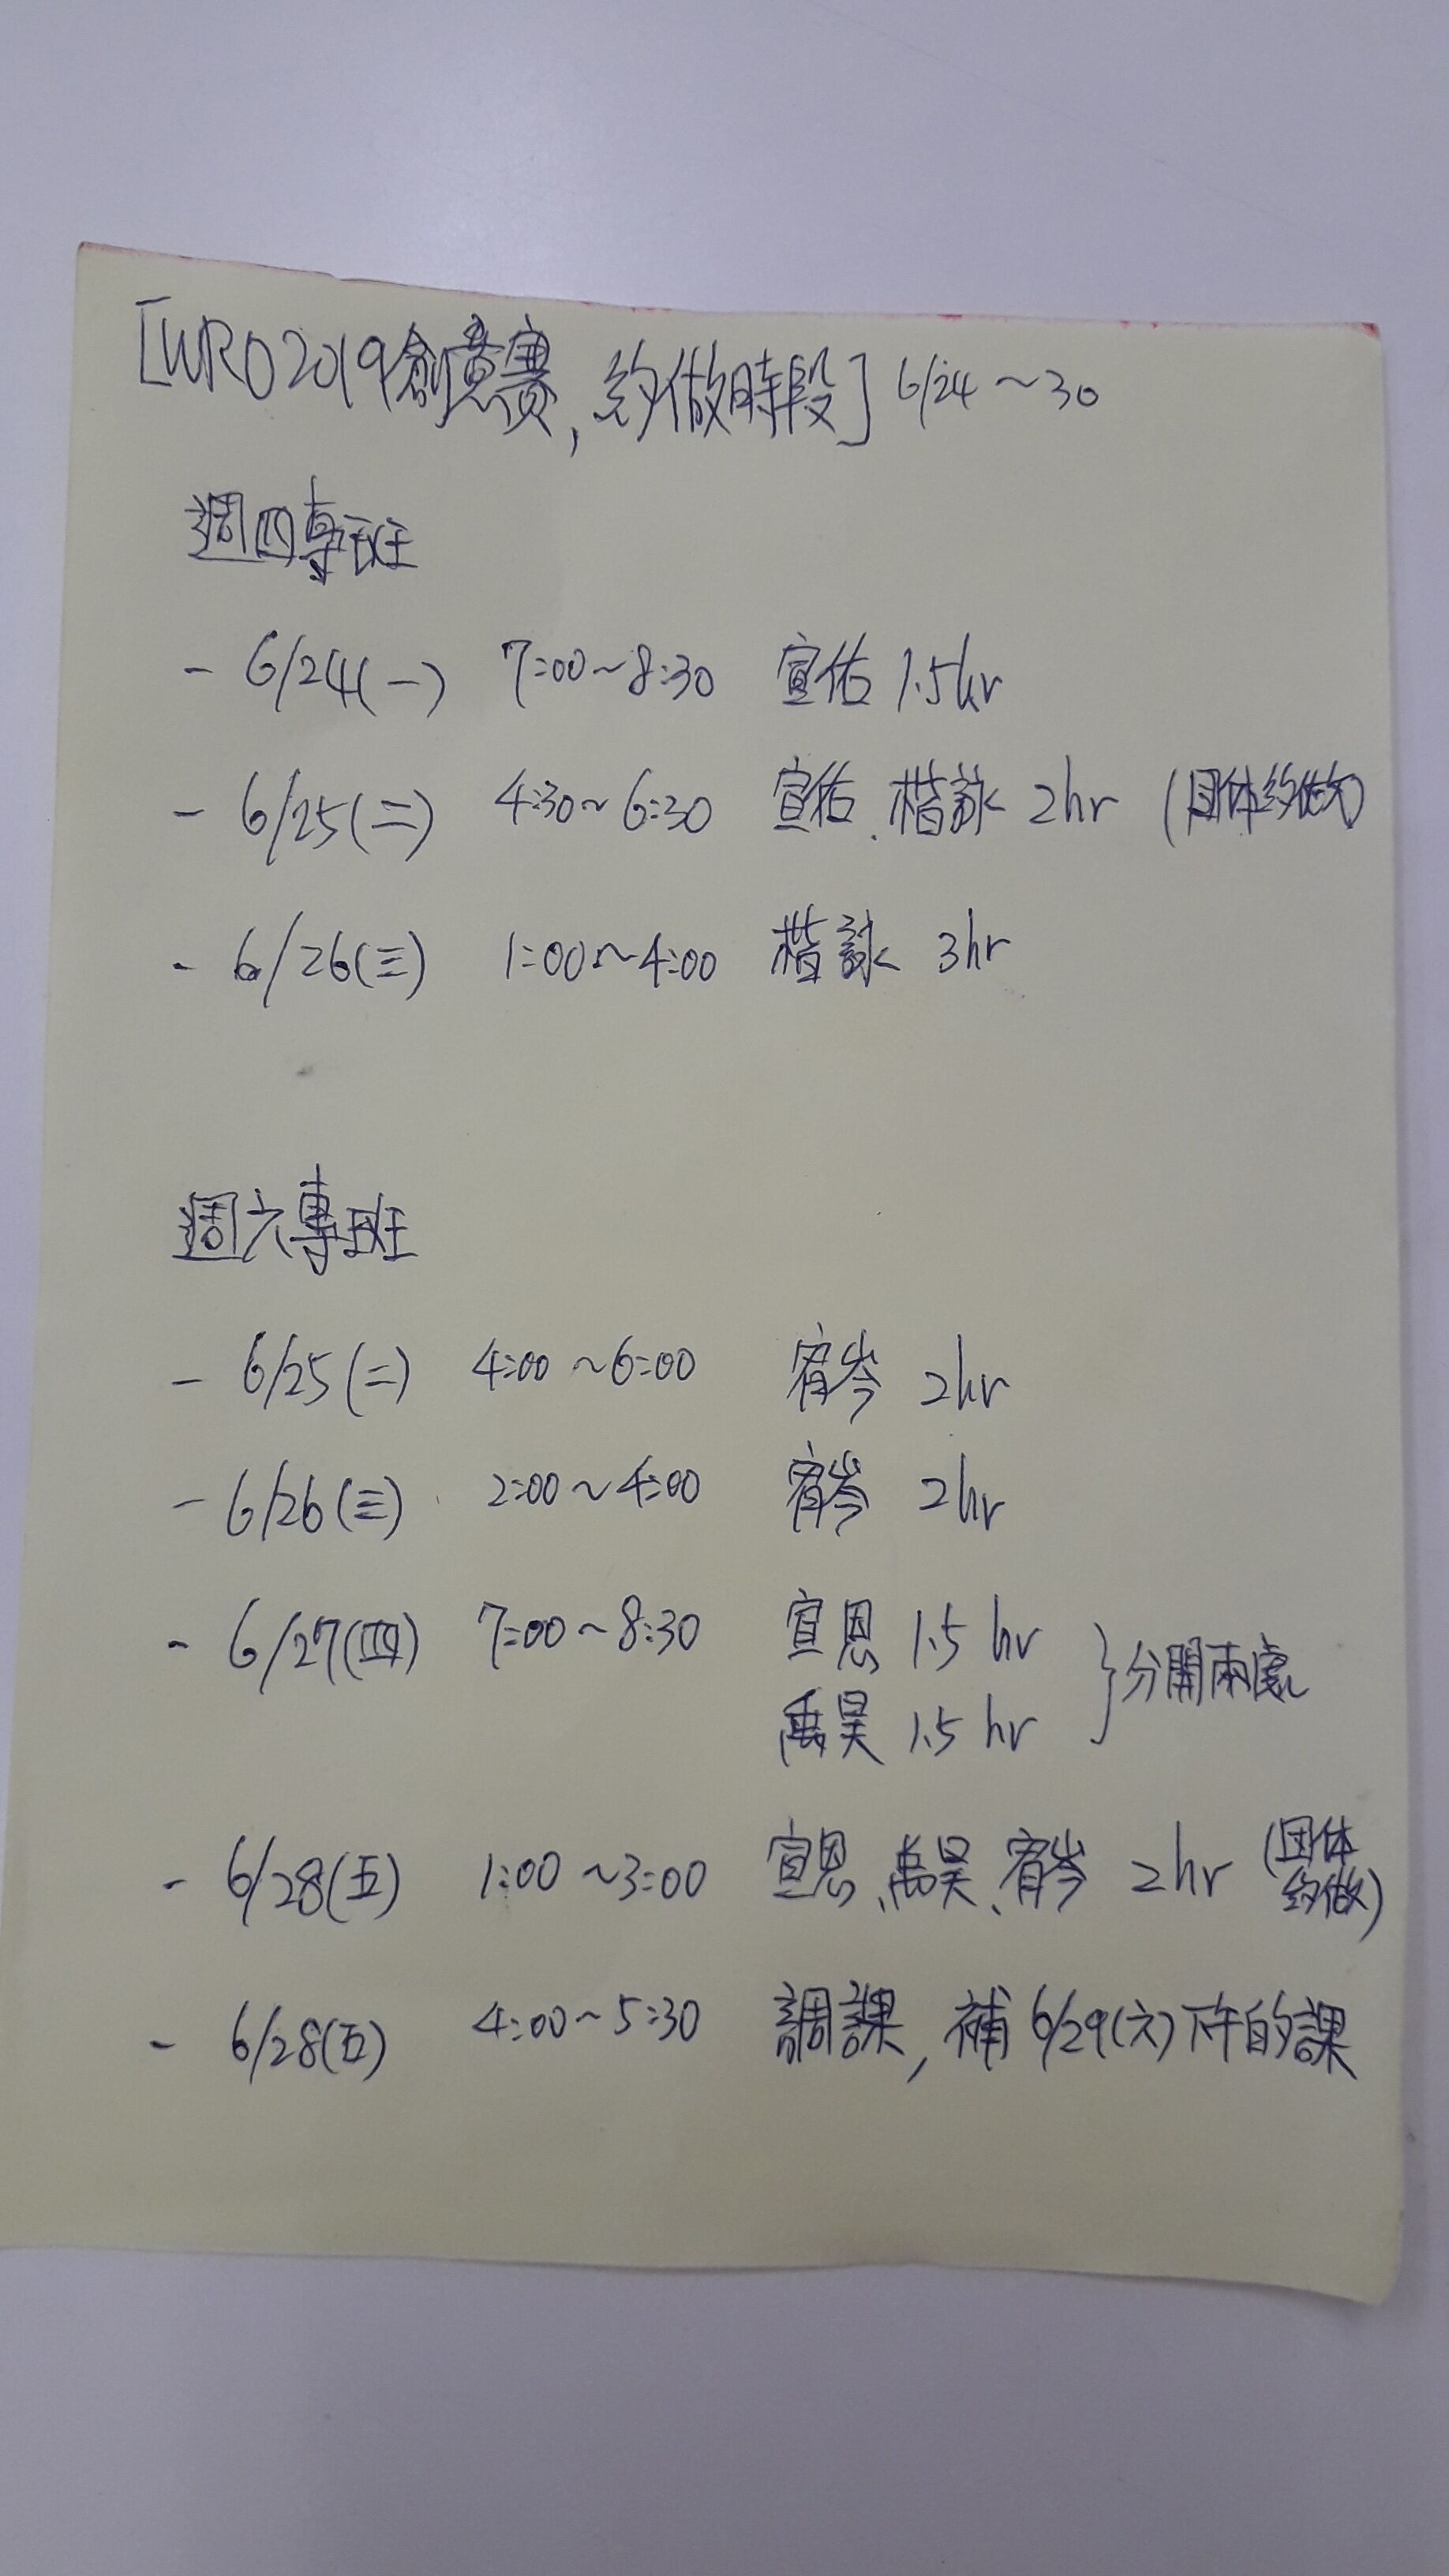 [WRO2019創意賽,約做時段] 6/24~30
週四專班
- 6/24(一) 7:00~8:30 宣佑 1.5hr
- 6/25(二) 4:30~6:30 宣佑、楷詠 2hr (团体約做)
- 6/26(三) 1:00~4:00 楷詠 3hr
週六專班
- 6/25(二) 4:00~6:00 宥岑 2hr
- 6/26(三) 2:00~4:00 宥岑 2hr
- 6/27(四) 7:00~8:30 宣恩 1.5 hr
禹昊 1.5 hr } 分開兩處
- 6/28(五) 1:00~3:00 宣恩、禹昊、宥岑 2hr (团体
約做)
- 6/28(五) 4:00~5:30 調課, 補 6/29(六)下午的課